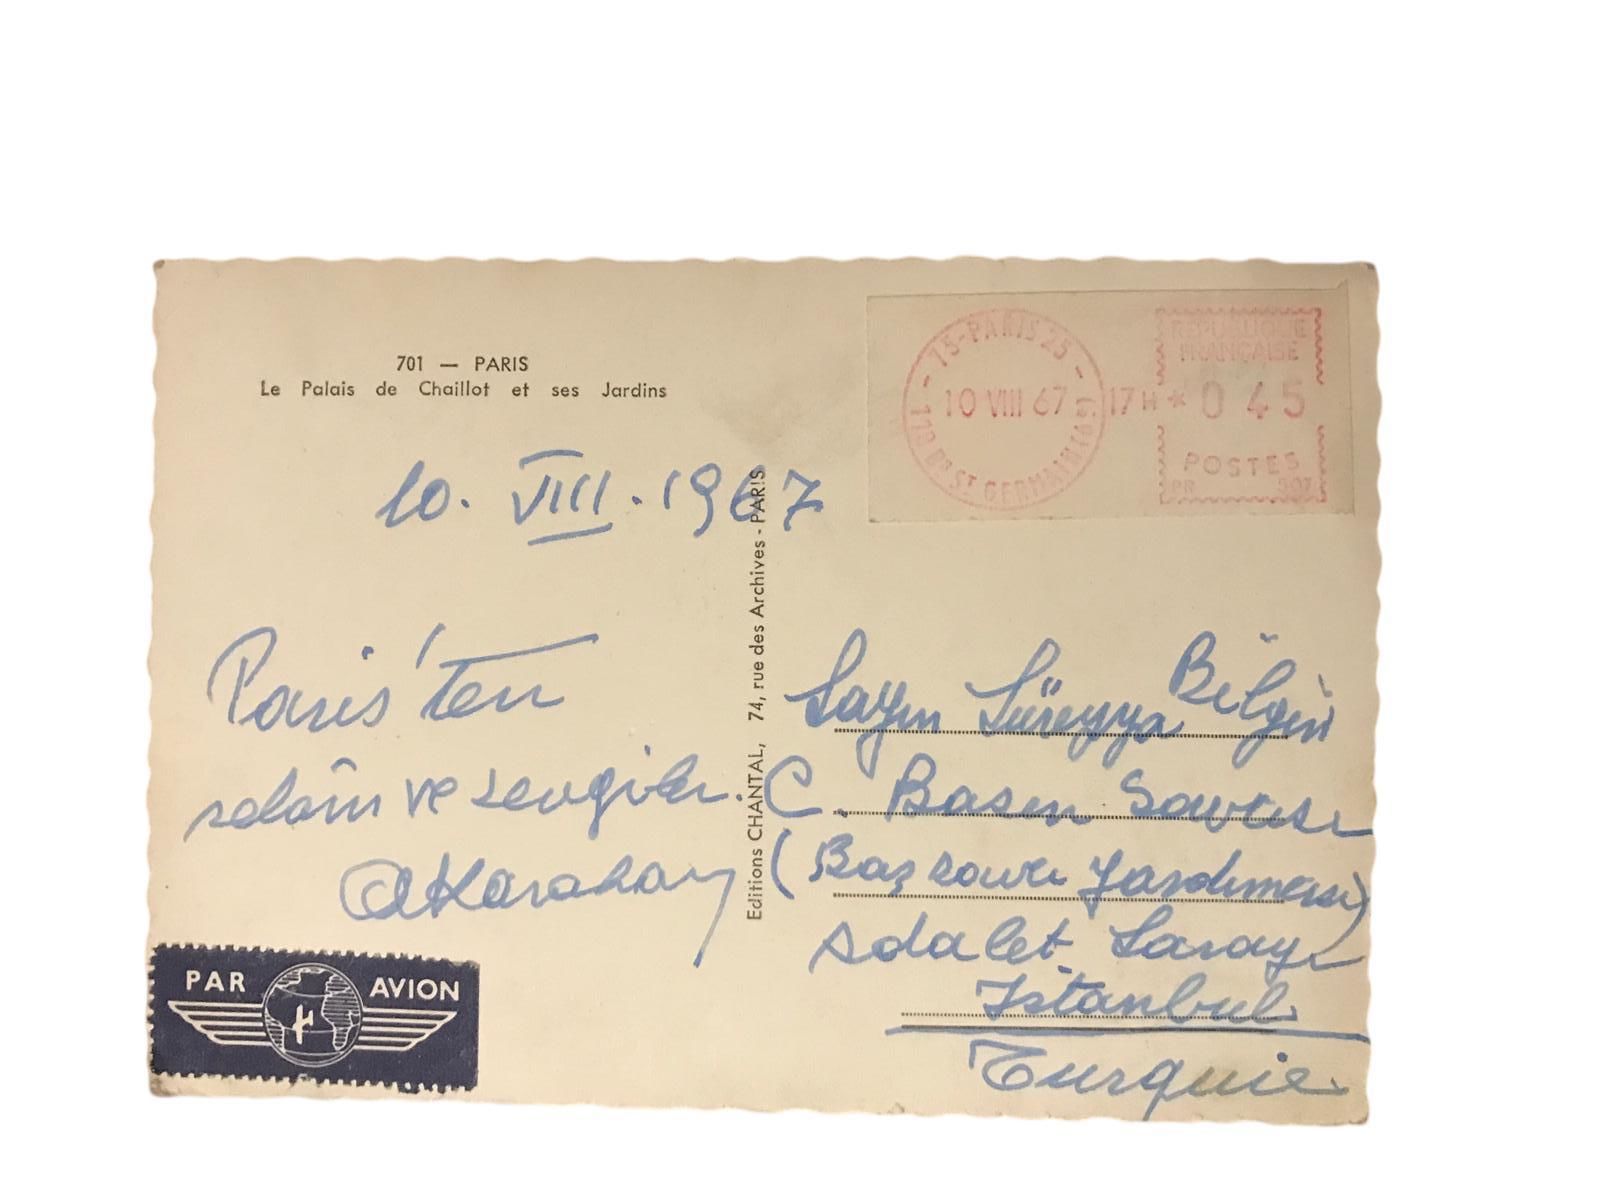 701 — PARIS
Le Palais de Chaillot et ses Jardins
10. VIII. 1967
Paris'ten
selâm ve sevgiler.
Editions CHANTAL, 74, rue des Archives - PARIS
75-PARIS 25
10 VIII 67 17H *
118 BD ST GERMAIN (6E)
REPUBLIQUE
FRANÇAISE
0 45
POSTES
Sayın Süreyya Bilgin
C. Basın Savcısı
(Başsavcı Yardımcısı)
Adalet Sarayı
İstanbul
Turquie
PAR AVION